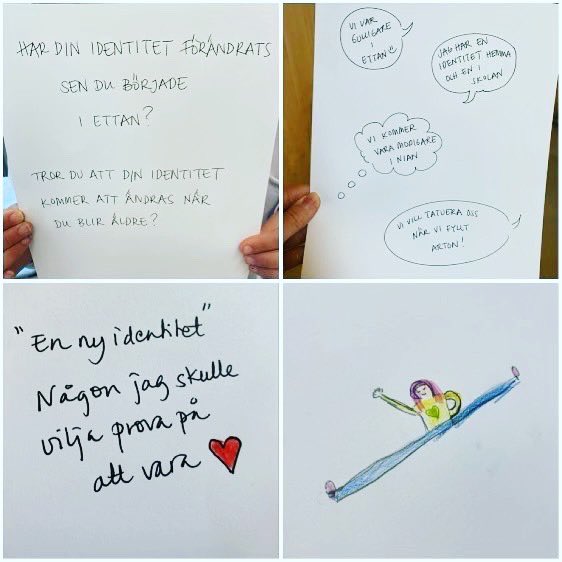 HAR DIN IDENTITET FÖRÄNDRATS
SEN DU BÖRJADE
I ETTAN?
TROR DU ATT DIN IDENTITET
KOMMER ATT ÄNDRAS NÄR
DU BLIR ÄLDRE?
VI VAR
GULLIGARE
I
ETTAN
JAG HAR EN
IDENTITET HEMMA
OCH EN I
SKOLAN
VI KOMMER
VARA MODIGARE
I NIAN
VI VILL TATUERA OSS
NÄR VI FYLLT
ARTON!
"En ny identitet"
Någon jag skulle
vilja prova på
att vara